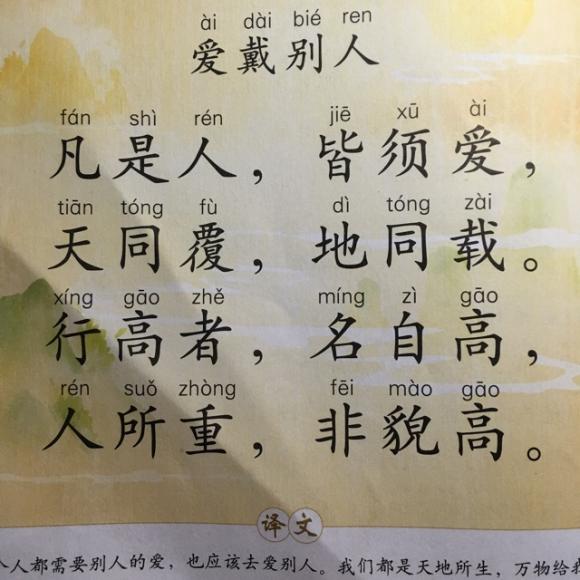 ài dài bié ren
爱戴别人
fán shì rén jiē xū ài
凡是人，皆须爱，
tiān tóng fù dì tóng zài
天同覆，地同载。
xíng gāo zhě míng zì gāo
行高者，名自高，
rén suǒ zhòng fēi mào gāo
人所重，非貌高。
译文
人都需要别人的爱，也应该去爱别人。我们都是天地所生，万物给我